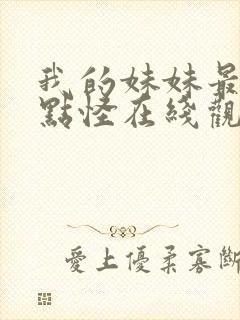 我的妹妹最
點怪在綫觀
愛上優柔寡斷